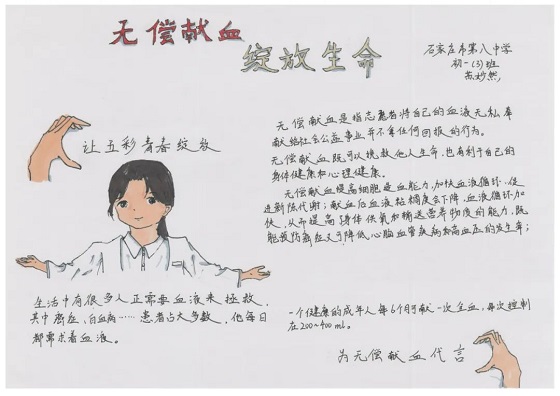 无偿献血
绽放生命
石家庄市第八中学
初一(3)班
让五彩青春绽放
无偿献血是指志愿者将自己的血液无私奉
献给社会公益事业并不拿任何回报的行为。
无偿献血既可以挽救他人生命，也有利于自己的
身体健康和心理健康。
无偿献血提高细胞造血能力，加快血液循环，促
进新陈代谢；献血后血液粘稠度会下降，血液循环加
快，从而提高身体供氧和输送营养物质的能力，既
能预防癌症又可降低心脑血管疾病和高血压的发生率；
生活中有很多人正需要血液来拯救，
其中癌症、白血病……患者占大多数，他每日
都需求着血液。
一个健康的成年人每6个月可献一次全血，每次控制
在200~400ml。
为无偿献血代言